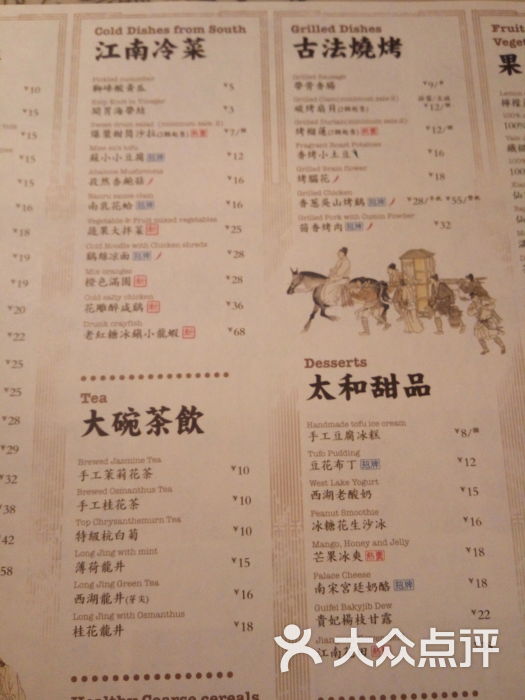 Cold Dishes from South
江南冷菜
Pickled cucumber
¥5
Kelp Knot in Vinegar
¥3
(minimum sale 2)
¥7/個
Miss su's tofu
蘇小小豆腐 招牌
¥12
Abalone Mushrooms
孜然杏鮑菇
¥16
Nanru sauce clam
南乳花蛤 招牌
¥16
Vegetable & Fruit mixed vegetables
蔬果大拌菜
¥25
Cold Noodle with Chicken shreds
鷄絲涼面 招牌
¥28
Mix oranges
橙色滿園
¥28
Cold salty chicken
花雕醉咸鷄
¥36
Drunk crayfish
老紅糖冰鎮小龍蝦
¥68
Tea
大碗茶飲
Brewed Jasmine Tea
手工茉莉花茶
¥10
Brewed Osmanthus Tea
手工桂花茶
¥10
Top Chrysanthemurn Tea
特級杭白菊
¥10
Long Jing with mint
薄荷龍井
¥15
Long Jing Green Tea
西湖龍井(芽尖)
¥16
Long Jing with Osmanthus
桂花龍井
¥18
Healthy Coarse cereals
Grilled Dishes
古法燒烤
Grilled Sausage
帶骨香腸
¥9/串
Grilled Clam(minimum sale 2)
¥12/個
Grilled Durian(minimum sale 2)
¥12/個
Fragrant Roast Potatoes
香烤小土豆
¥16
Grilled Brain flower
烤腦花
¥18
Grilled Chicken
香葱吳山烤鷄 招牌
¥28/半隻 ¥55/整隻
Grilled Pork with Cumin Powder
茴香烤肉 招牌
¥32
Desserts
太和甜品
Handmade tofu ice cream
手工豆腐冰糕
¥8/個
Tufo Pudding
豆花布丁 招牌
¥12
West Lake Yogurt
西湖老酸奶
¥15
Peanut Smoothie
冰糖花生沙冰
¥16
Mango, Honey and Jelly
芒果冰爽 熱賣
¥18
Palace Cheese
南宋宮廷奶酪 招牌
¥18
Guifei Bakyjib Dew
貴妃楊枝甘露
¥22
江南
Fruit
Veget
果
¥10
¥15
¥15
¥15
¥18
¥19
¥20
¥22
¥25
¥25
¥28
¥29
¥32
¥38
¥42
58
大众点评